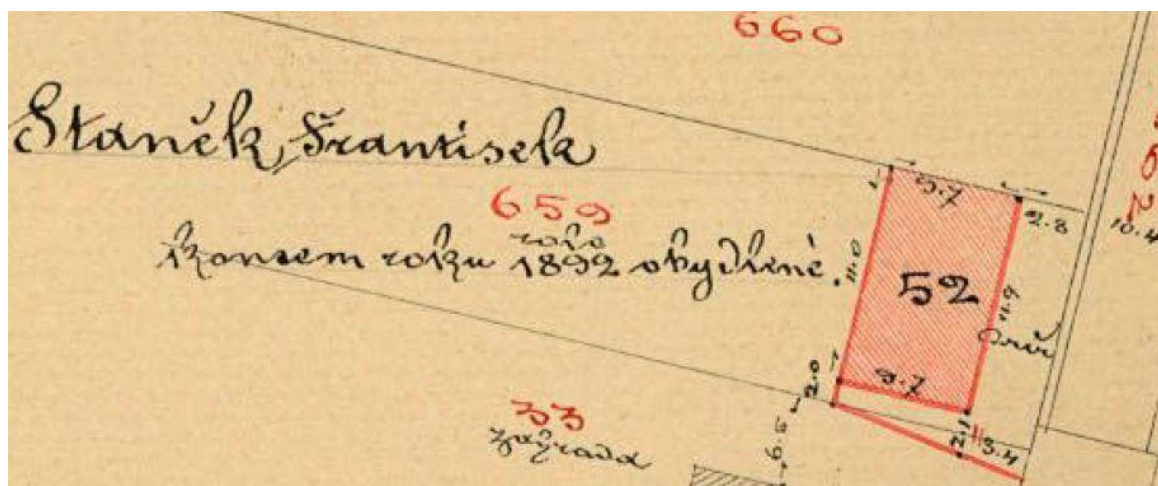 660
Staněk František
659
role
koncem roku 1892 obydlené.
52
5.7
2.8
10.4
11.0
11.9
dvůr
2.0
5.7
33
zahrada
6.5
2.1
3.4